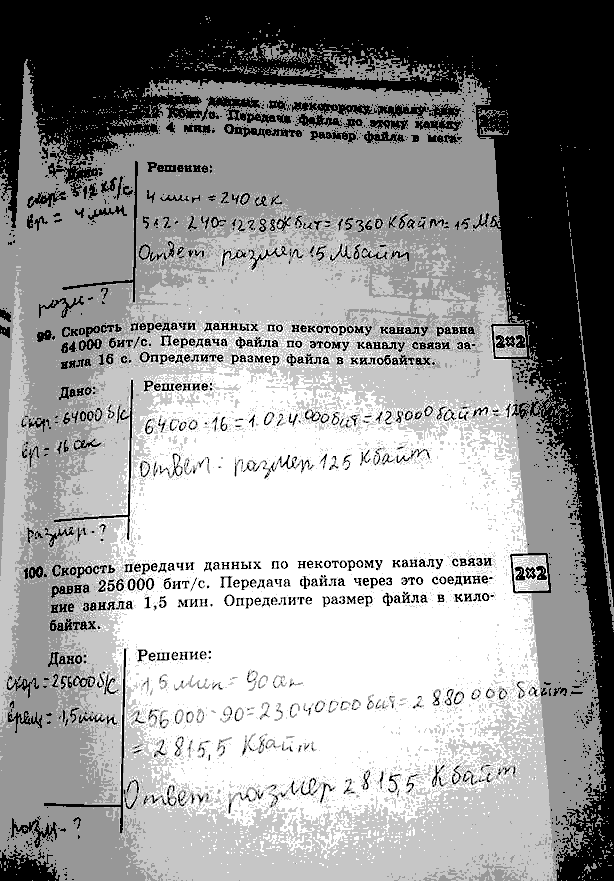 данных по некоторому каналу
Кбит/с. Передача файла по этому каналу
4 мин. Определите размер файла в мега-
Дано:
Решение:
скор = 512 кб/с
вр = 4 мин
4 мин = 240 сек
512 · 240 = 122880 Кбит = 15360 Кбайт = 15 Мб
Ответ размер 15 Мбайт
разм - ?
99. Скорость передачи данных по некоторому каналу равна
64 000 бит/с. Передача файла по этому каналу связи за-
няла 16 с. Определите размер файла в килобайтах.
2≡2
Дано:
Решение:
скор = 64000 б/с
вр = 16 сек
64000 · 16 = 1.024.000 бит = 128000 байт = 125 К
Ответ: размер 125 Кбайт
размер - ?
100. Скорость передачи данных по некоторому каналу связи
равна 256 000 бит/с. Передача файла через это соедине-
ние заняла 1,5 мин. Определите размер файла в кило-
байтах.
2≡2
Дано:
Решение:
скор = 256000 б/с
врем = 1,5 мин
1,5 мин = 90 сек
256000 · 90 = 23040000 бит = 2 880 000 байт =
= 2815,5 Кбайт
Ответ размер 2815,5 Кбайт
разм - ?